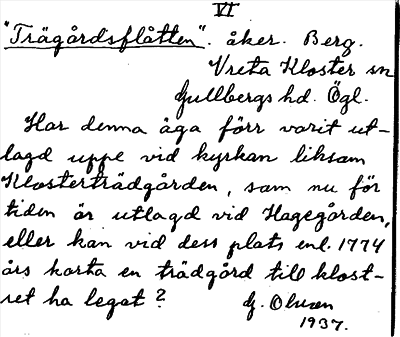 VI
"Trägårdsflåtten". åker. Berg.
Vreta Kloster sn
Gullbergs hd. Ögl.
Har denna äga förr varit ut-
lagd uppe vid kyrkan liksom
Klosterträdgården, som nu för
tiden är utlagd vid Hagegården,
eller kan vid dess plats enl. 1774
års karta en trädgård till klost-
ret ha legat? G.
1937.